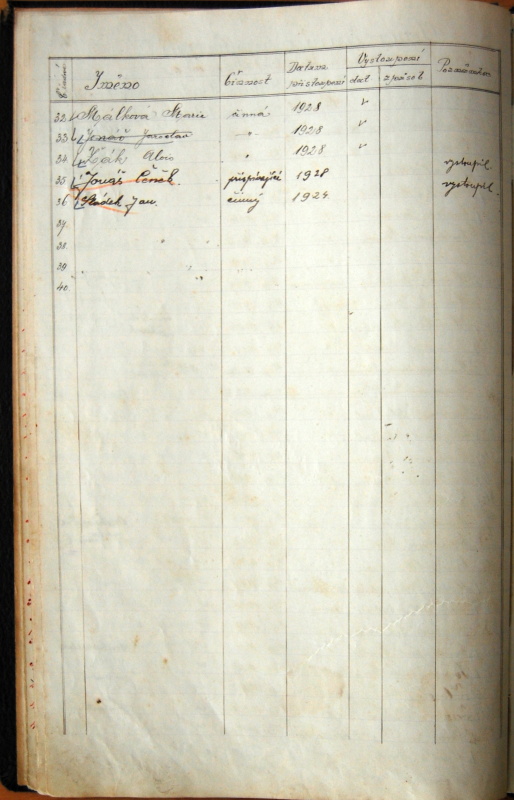 Jméno Činnost Datum přistoupení Vystoupení dat způsob Poznámka
32 Málková Marie činná 1928 v
33 Jonáš Jaroslav " 1928 v
34 Žák Alois " 1928 v
35 Jonáš Čeněk. přispívající 1928 vystoupil.
36 Jan. činný 1924 vystoupil.
37.
38.
39
40.